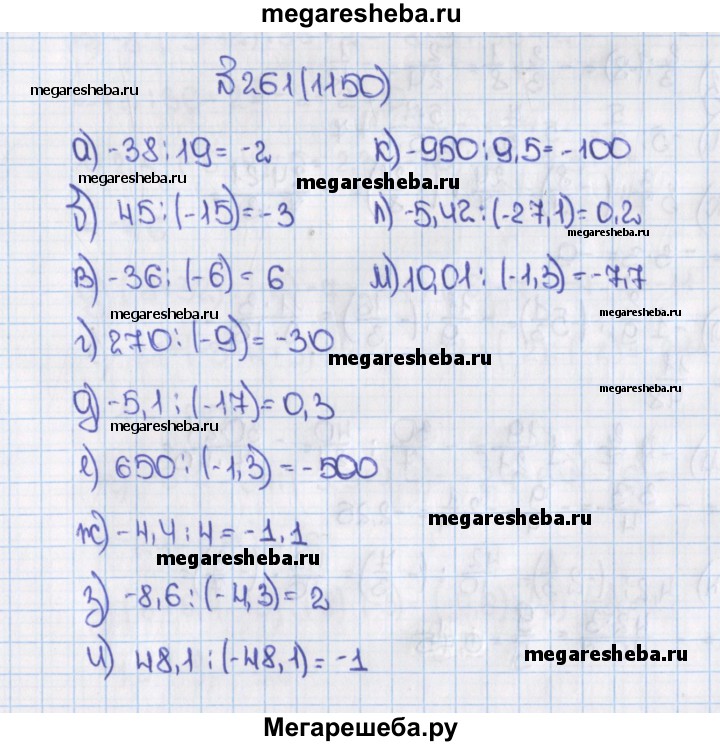 megaresheba.ru
№261(1150)
megaresheba.ru
а) -38:19= -2
к) -950:9,5= -100
megaresheba.ru
megaresheba.ru
б) 45:(-15)= -3
л) -5,42:(-27,1)= 0,2
megaresheba.ru
в) -36:(-6)= 6
м) 10,01:(-1,3)= -7,7
megaresheba.ru
megaresheba.ru
г) 270:(-9)= -30
megaresheba.ru
д) -5,1:(-17)= 0,3
megaresheba.ru
megaresheba.ru
е) 650:(-1,3)= -500
ж) -4,4:4= -1,1
megaresheba.ru
megaresheba.ru
з) -8,6:(-4,3)= 2
и) 48,1:(-48,1)= -1
megaresheba.ru
Мегарешеба.ру